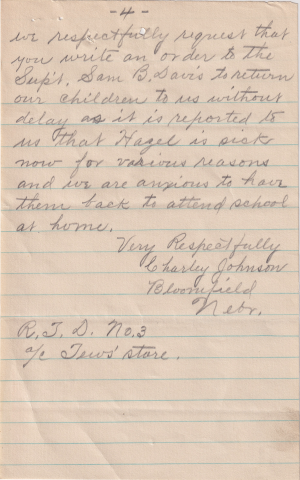 - 4 -
we respectfully request that
you write an order to the
Sup't. Sam B. Davis to return
our children to us without
delay as it is reported to
us that Hazel is sick
now for various reasons
and we are anxious to have
them back to attend school
at home.
Very Respectfully
Charley Johnson
Bloomfield
Nebr.
R.F.D. No.3
a/c Tews' store.